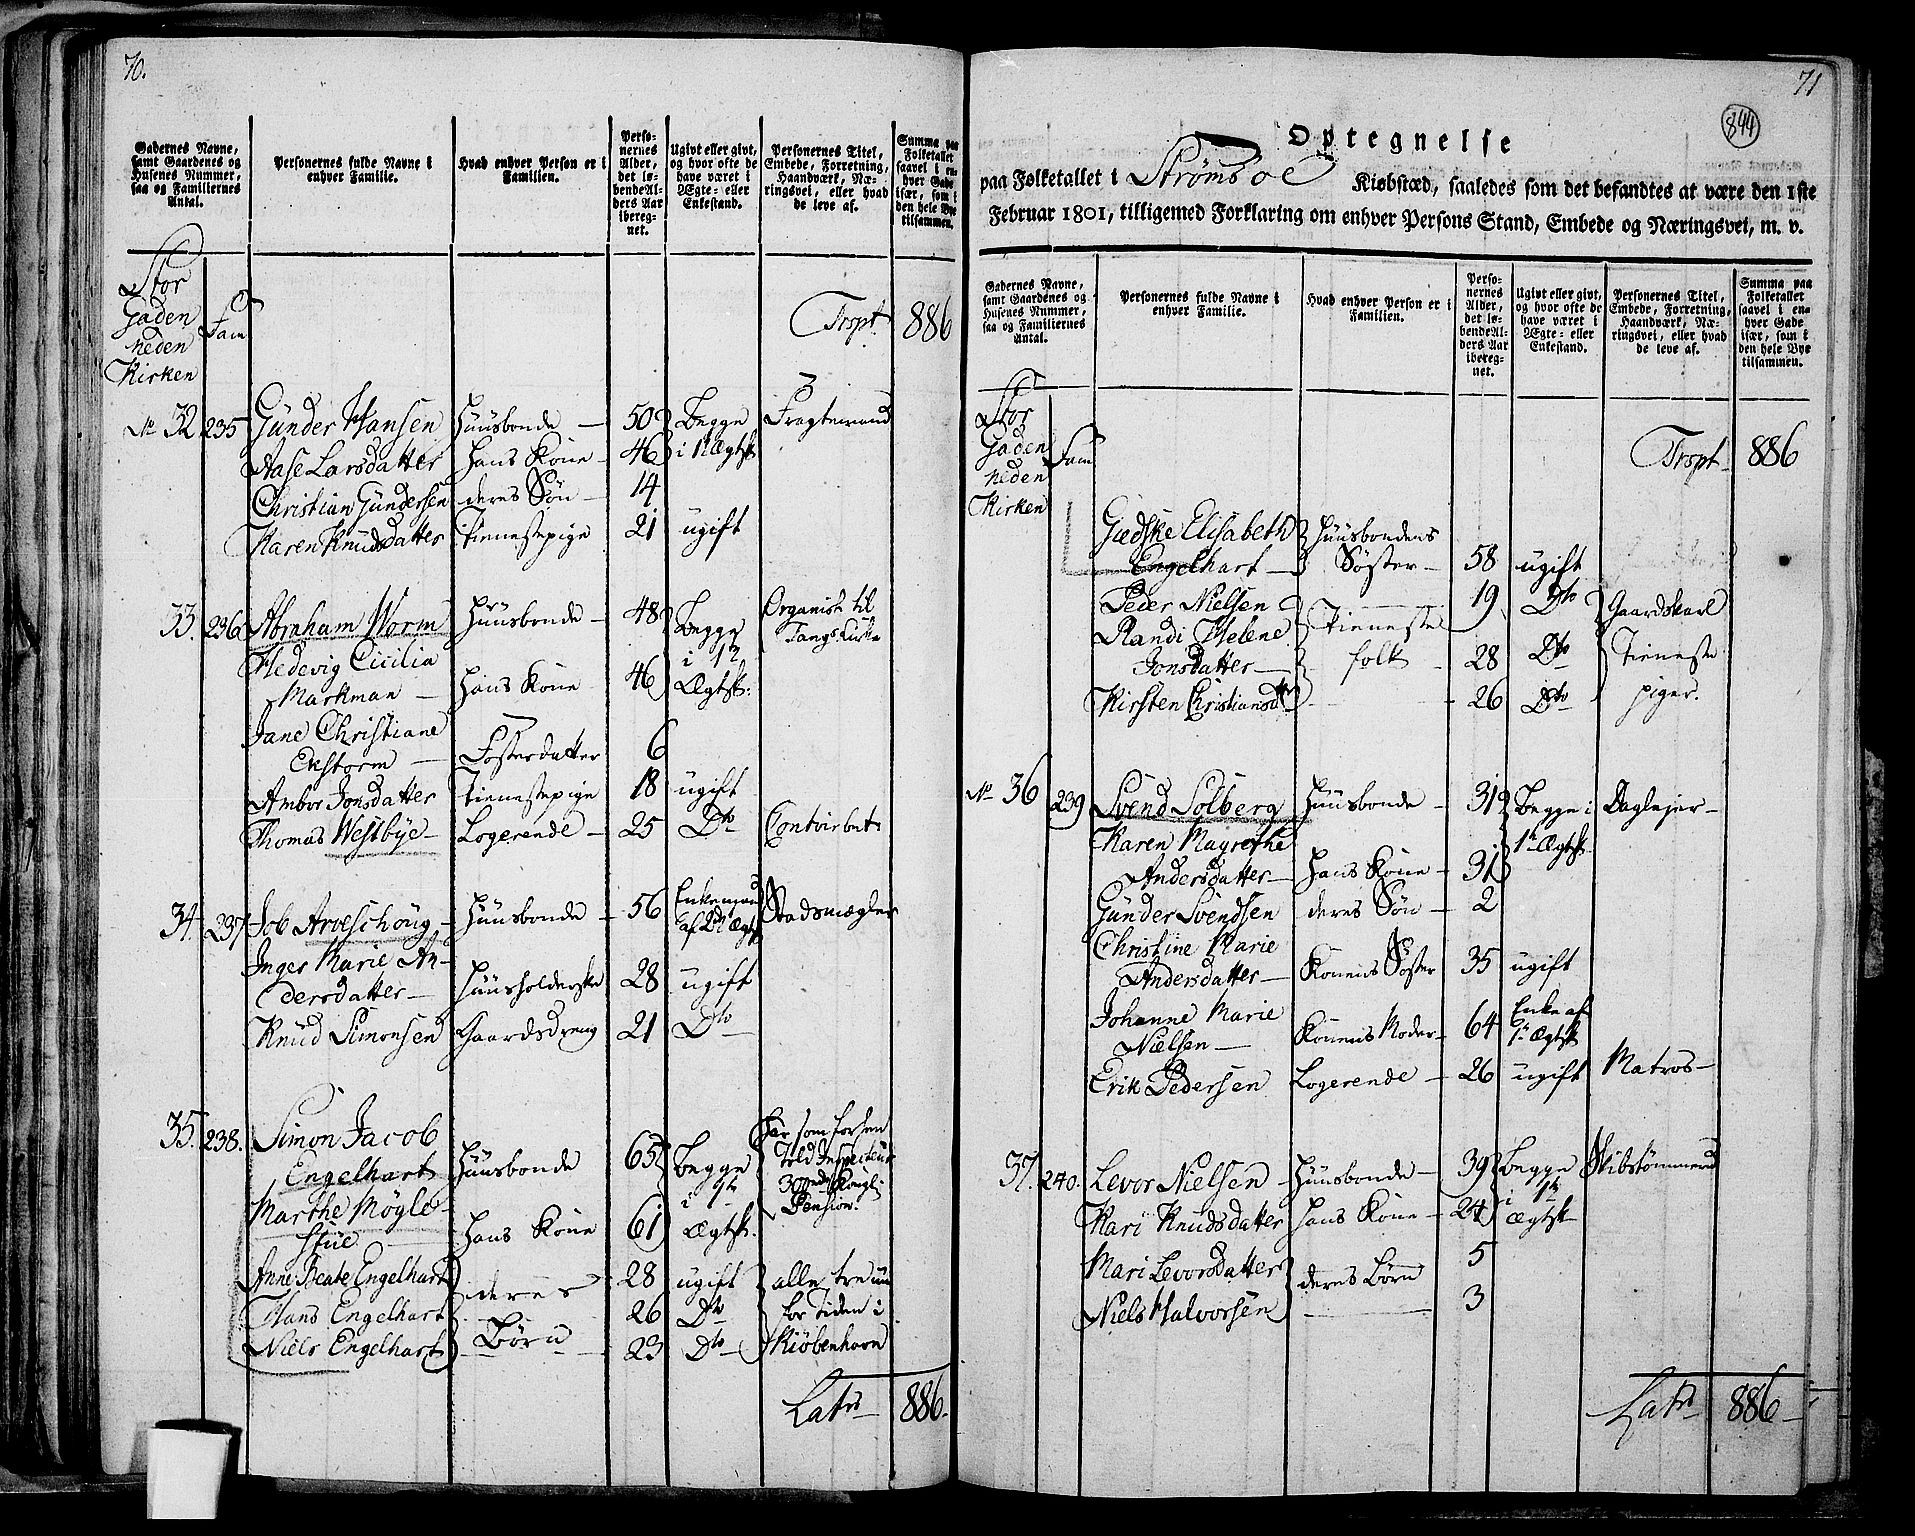 70.
Gadernes Navne, samt Gaardenes og Husenes Nummer, saa og Familiernes Antal.
Personernes fulde Navne i enhver Familie.
Hvad enhver Person er i Familien.
Personernes Alder, det løbendeAlders Aar iberegnet.
Ugivt eller givt, og hvor ofte de have været i Ægte- eller Enkestand.
Personernes Titel, Embede, Forretning, Haandværk, Næringsvei, eller hvad de leve af.
Summa paa Folketallet saavel i enhver Gade især, som i den hele Bye tilsammen.
Stor
Gaden Fam
neden
Kirken
Trspt 886
No 32 235 Günder Hansen Huusbonde 50 Begge Fragtemand
Aase Larsdatter hans Kone 46 i 1 Ægtsk
Christian Gundersen deres Søn 14
Karen Knudsdatter Tienestepige 21 ugift
33. 236 Abraham Worm Huusbonde 48 Begge Organist til
Hedevig Cicilia i 1ste
Markman hans Kone 46 Ægtsk:
Jane Christiane
Ekstorm Fosterdatter 6
Ambor Jonsdatter Tienestepige 18 ugift
Thomas Westbye Logerende 25 Dto Contoirbet:
34. 237 Job Arveschoug Huusbonde 56 Enkemand Stadsmægler
af 2det Ægtsk
Inger Marie An-
dersdatter Huusholderske 28 ugift
Knud Simonsen Gaardsdreng 21 Dto
35. 238. Simon Jacob har som forhen
Engelhart Huusbonde 65 Begge Told Inspecteur
i 1te 300rd Kongl:
Pension.
Marthe Møgle-
stue hans Kone 61 Ægtsk.
Anne Beate Engelhart deres 28 ugift alle tre nu
Hans Engelhart 26 Dto for Tiden i
Niels Engelhart Børn 23 Dto Kiøbenhavn
Latrs 886.
71
844
Optegnelse
paa Folketallet i Strømsoe Kiøbstæd, saaledes som det befandtes at være den 1ste
Februar 1801, tilligemed Forklaring om enhver Persons Stand, Embede og Næringsvei, m. v.
Gadernes Navne, samt Gaardenes og Husenes Nummer, saa og Familiernes Antal.
Personernes fulde Navne i enhver Familie.
Hvad enhver Person er i Familien.
Personernes Alder, det løbendeAlders Aar iberegnet.
Ugivt eller givt, og hvor ofte de have været i Ægte- eller Enkestand.
Personernes Titel, Embede, Forretning, Haandværk, Næringsvei, eller hvad de leve af.
Summa paa Folketallet saavel i enhver Gade især, som i den hele Bye tilsammen.
Stor
Gaden Fam
neden
Kirken
Trspt 886
Giedske Elisabeth Huusbondens
Engelhart Søster 58 ugift
Peder Nielsen Tieneste 19 Dto Gaardskarl
Randi Helene
Jonsdatter folk 28 Dto Tieneste
Kirsten Christiansdtr 26 Dto piger.
No 36 239 Svend Solberg Huusbonde 31 Begge i Daglejer
Karen Magrethe 1te Ægtsk
Andersdatter hans Kone 31
Günder Svendsen deres Søn 2
Christine Marie
Andersdatter Konens Søster 35 ugift
Johanne Marie Enke af
Nielsen Konens Moder 64 1te Ægtsk
Erik Pedersen Logerende 26 ugift Matros
37. 240. Levor Nielsen Huusbonde 39 Begge Skibstømmerm
Kari Knudsdatter hans Kone 24 i 1te Ægtsk
Mari Levorsdatter deres Børn 5
Niels Halvorsen 3
Latrs 886